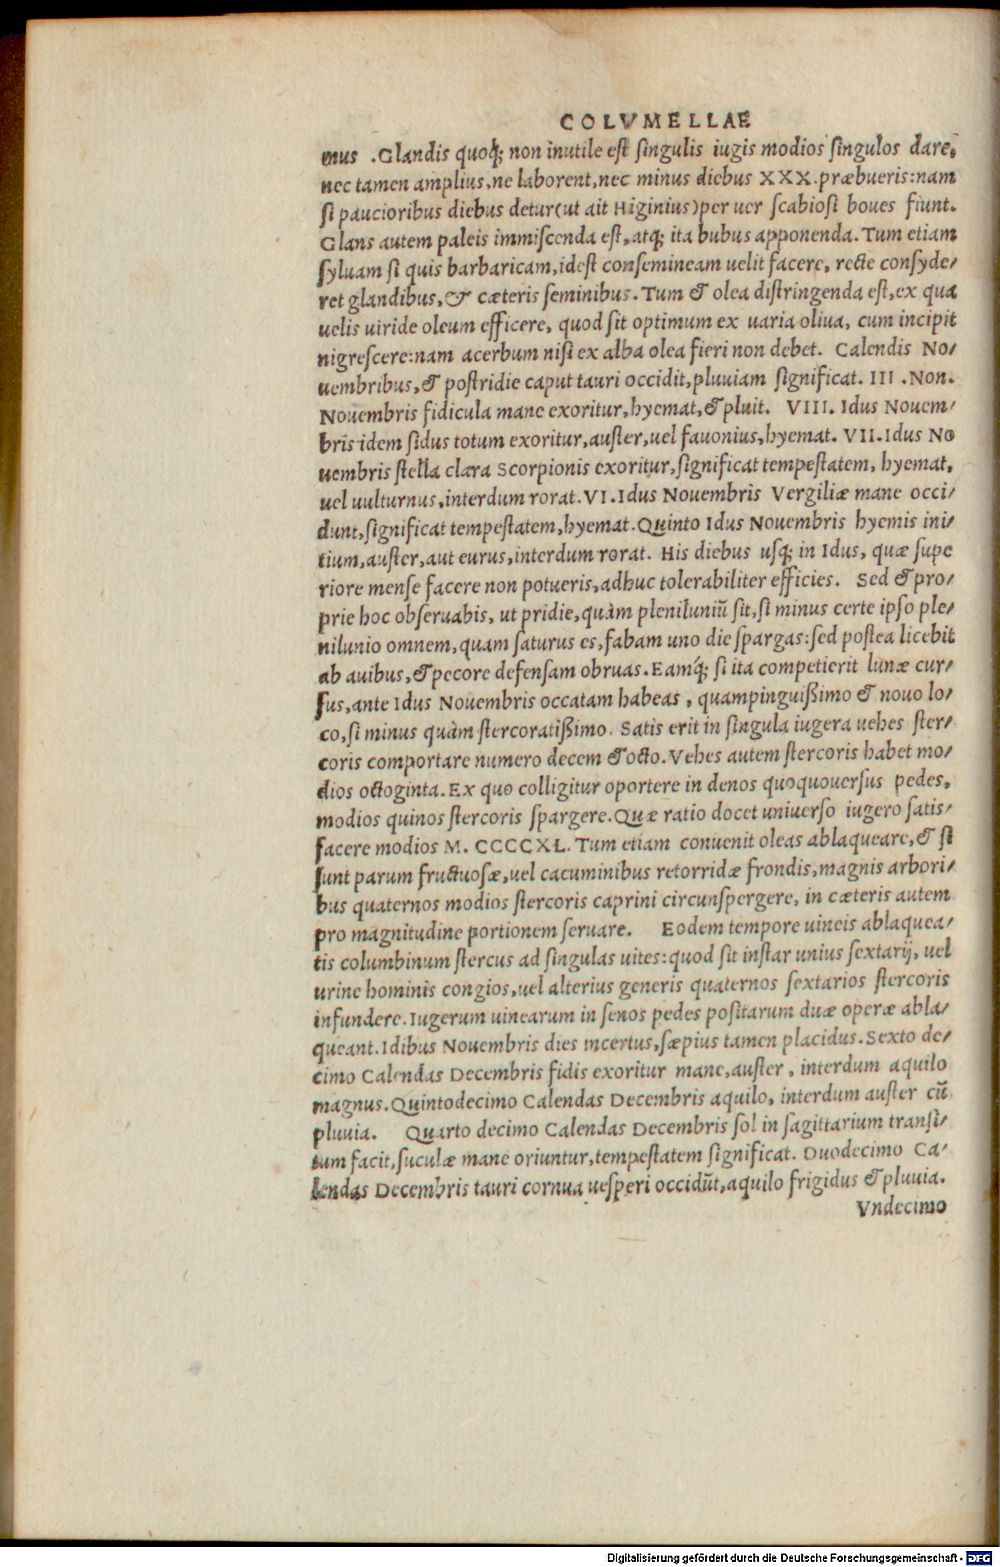 COLVMELLAE
mus .Glandis quoq; non inutile est singulis iugis modios singulos dare,
nec tamen amplius,ne laborent,nec minus diebus XXX.præbueris:nam
si paucioribus diebus detur(ut ait Higinius)per uer scabiosi boues fiunt.
Glans autem paleis immiscenda est,atq; ita bubus apponenda.Tum etiam
syluam si quis barbaricam,idest consemineam uelit facere, recte consyde/
ret glandibus,& cæteris seminibus.Tum & olea distringenda est,ex qua
uelis uiride oleum efficere, quod sit optimum ex uaria oliua, cum incipit
nigrescere:nam acerbum nisi ex alba olea fieri non debet. Calendis No/
uembribus,& postridie caput tauri occidit,pluuiam significat. III .Non.
Nouembris fidicula mane exoritur,hyemat,& pluit. VIII. Idus Nouem/
bris idem sidus totum exoritur,auster,uel fauonius,hyemat. VII.Idus No
uembris stella clara Scorpionis exoritur,significat tempestatem, hyemat,
uel uulturnus,interdum rorat.VI.Idus Nouembris Vergiliæ mane occi/
dunt,significat tempestatem,hyemat.Quinto Idus Nouembris hyemis ini/
tium,auster,aut eurus,interdum rorat. His diebus usq; in Idus, quæ supe
riore mense facere non potueris,adhuc tolerabiliter efficies. Sed & pro/
prie hoc obseruabis, ut pridie,quàm pleniluniū sit,si minus certe ipso ple/
nilunio omnem,quam saturus es,fabam uno die spargas:sed postea licebit
ab auibus,& pecore defensam obruas.Eamq́; si ita competierit lunæ cur/
sus,ante Idus Nouembris occatam habeas , quampinguißimo & nouo lo/
co,si minus quàm stercoratißimo. Satis erit in singula iugera uehes ster/
coris comportare numero decem & octo.Vehes autem stercoris habet mo/
dios octoginta.Ex quo colligitur oportere in denos quoquouersus pedes,
modios quinos stercoris spargere.Quæ ratio docet uniuerso iugero satis/
facere modios M. CCCCXL.Tum etiam conuenit oleas ablaqueare,& si
sunt parum fructuosæ,uel cacuminibus retorridæ frondis,magnis arbori/
bus quaternos modios stercoris caprini circunspergere, in cæteris autem
pro magnitudine portionem seruare. Eodem tempore uineis ablaquea/
tis columbinum stercus ad singulas uites:quod sit instar unius sextarij, uel
urine hominis congios,uel alterius generis quaternos sextarios stercoris
infundere.Iugerum uinearum in senos pedes positarum duæ operæ abla/
queant.Idibus Nouembris dies incertus,sæpius tamen placidus.Sexto de/
cimo Calendas Decembris fidis exoritur mane,auster, interdum aquilo
magnus.Quintodecimo Calendas Decembris aquilo, interdum auster cū
pluuia. Quarto decimo Calendas Decembris sol in sagittarium transi/
tum facit,suculæ mane oriuntur,tempestatem significat. Duodecimo Ca/
lendas Decembris tauri cornua uesperi occidūt,aquilo frigidus & pluuia.
Vndecimo
Digitalisierung gefördert durch die Deutsche Forschungsgemeinschaft - DFG